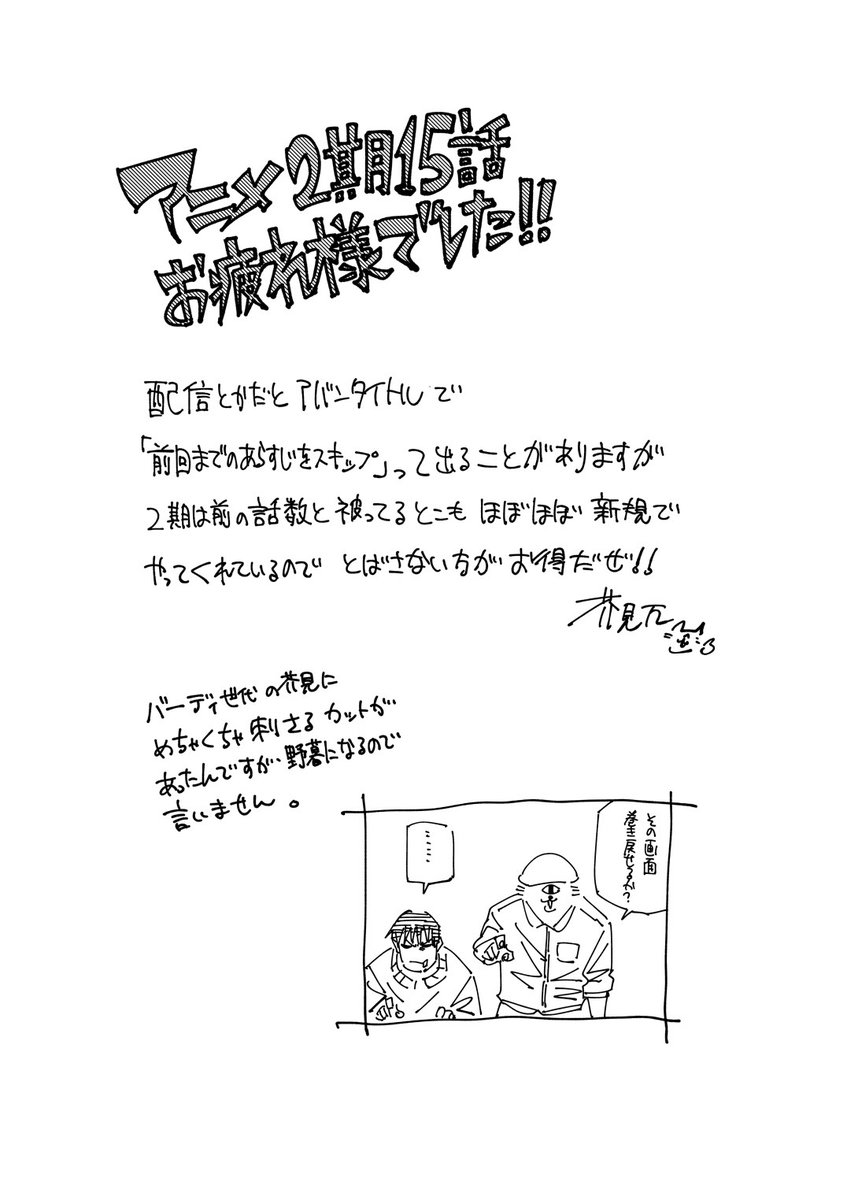 アニメ2期15話
お疲れ様でした!!
配信とかだとアバンタイトルで
「前回までのあらすじをスキップ」って出ることがありますが
2期は前の話数と被ってるとこもほぼほぼ新規で
やってくれているのでとばさない方がお得だぜ!!
芥見下々
バーディ世代の芥見に
めちゃくちゃ刺さるカットが
あったんですが、野暮になるので
言いません。
その画面
巻き戻せるか?
……